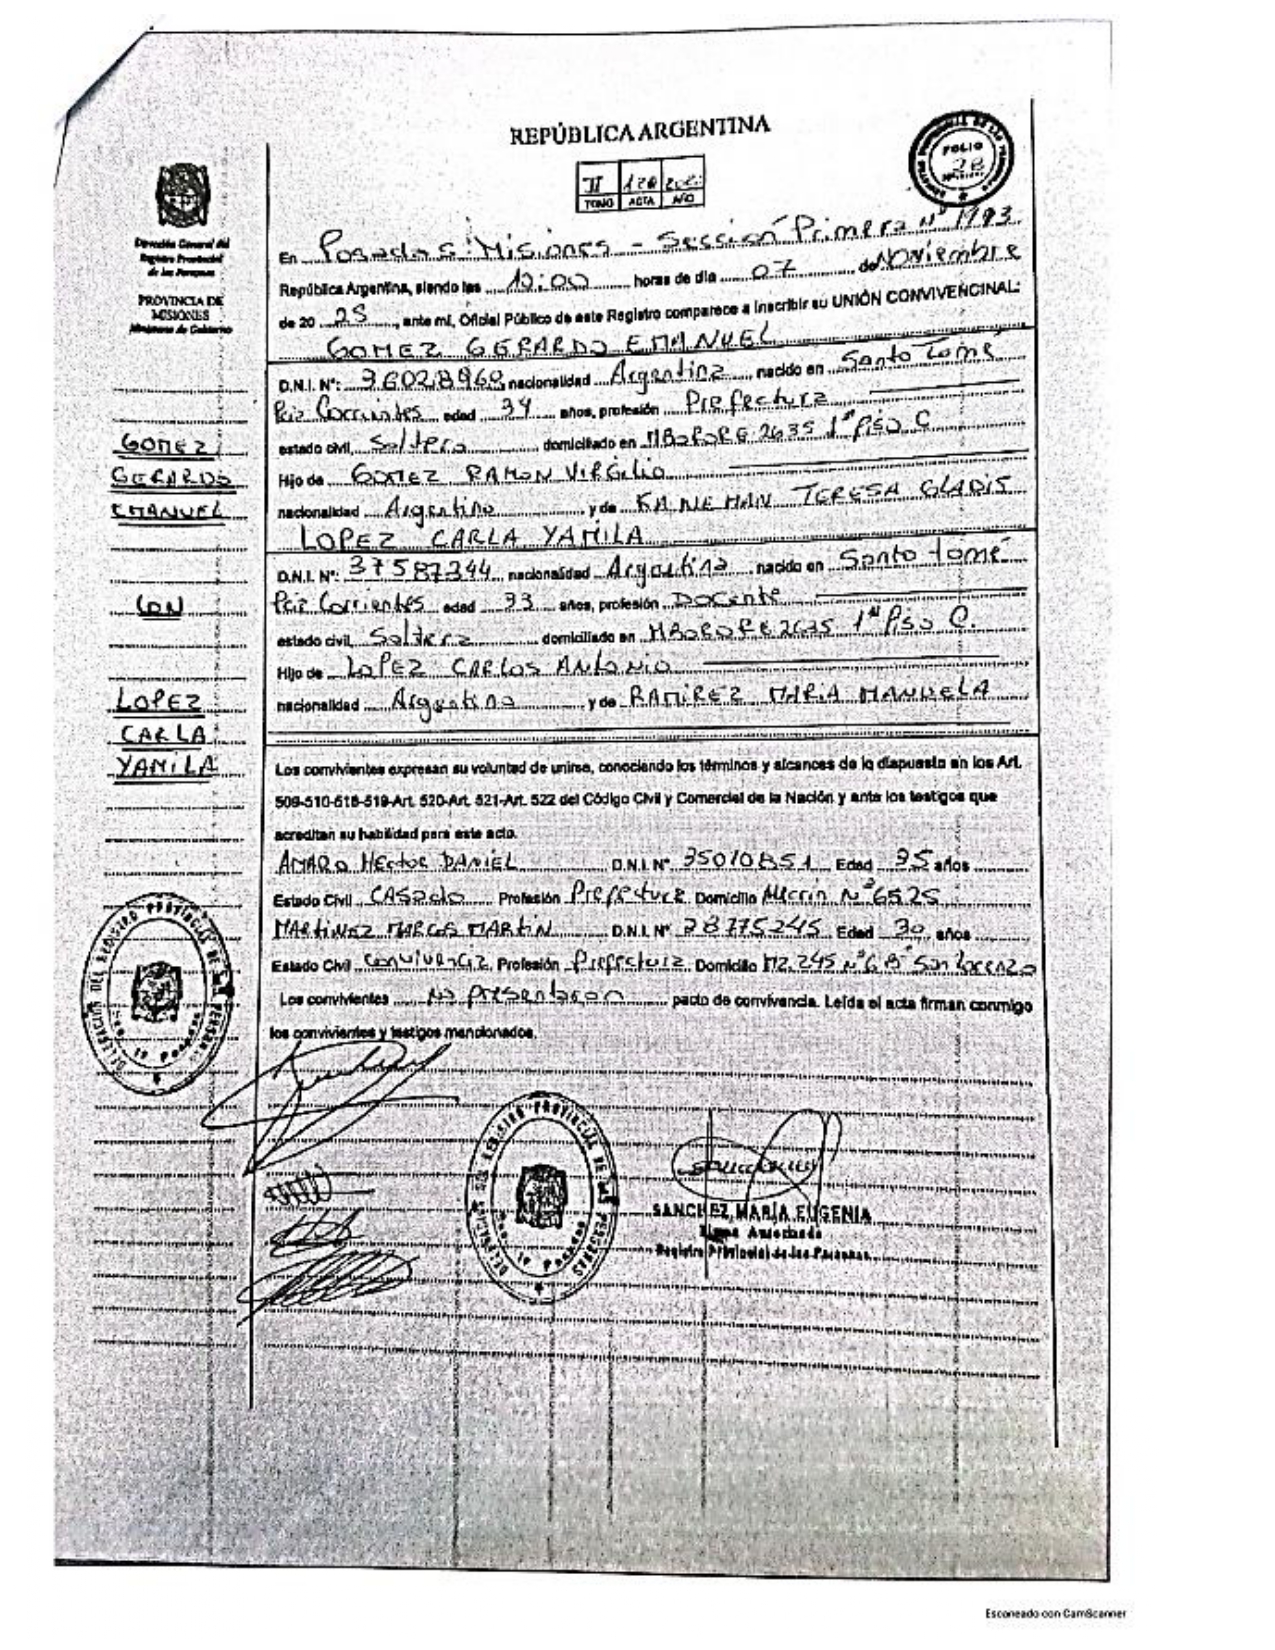 REPÚBLICA ARGENTINA
FOLIO
28
II
TOMO ACTA AÑO
Dirección General del
Registro Provincial
de las Personas
PROVINCIA DE
MISIONES
Ministerio de Gobierno
En Posadas Misiones - Sección Primera Nº 1993
República Argentina, siendo las 12:00 horas de día 07 de Noviembre
de 20 25, ante mi, Oficial Público de este Registro comparece a inscribir su UNIÓN CONVIVENCINAL:
GOMEZ GERARDO EMANUEL
D.N.I. Nº: 36028968 nacionalidad Argentina nacido en Santo Tomé
Pcia Corrientes edad 34 años, profesión Prefectura
estado civil, Soltero domiciliado en MBORORE 2635 1º Piso C
Hijo de GOMEZ RAMON VIRGILIO
nacionalidad Argentino y de TERESA GLADIS
LOPEZ CARLA YAMILA
D.N.I. Nº: 37587344 nacionalidad Argentina nacido en Santo tomé
Pcia Corrientes edad 33 años, profesión Docente
estado civil, Soltera domiciliado en MBORORE 2635 1º Piso C.
Hijo de LOPEZ CARLOS ANTONIO
nacionalidad Argentino y de RAMIREZ MARIA MANUELA
GOMEZ
GERARDO
EMANUEL
CON
LOPEZ
CARLA
YAMILA
Los convivientes expresan su voluntad de unirse, conociendo los términos y alcances de lo dispuesto en los Art.
509-510-518-519-Art. 520-Art. 521-Art. 522 del Código Civil y Comercial de la Nación y ante los testigos que
acreditan su habilidad para este acto.
AMARO HECTOR DANIEL D.N.I. Nº 35010851 Edad 35 años
Estado Civil CASADO Profesión Prefectura Domicilio Nº 6525
MARTINEZ MARCOS MARTIN D.N.I. Nº 38775245 Edad 30 años
Estado Civil convivencia Profesión Prefectura Domicilio MZ 245 Nº 6 Bº San Lorenzo
Los convivientes No presentaron pacto de convivencia. Leída el acta firman conmigo
los convivientes y testigos mencionados.
DELEGACION DEL REGISTRO PROVINCIAL DE LAS PERSONAS
Sec. 1º Posadas
DELEGACION DEL REGISTRO PROVINCIAL DE LAS PERSONAS
Sec. 1º Posadas
SANCHEZ, MARÍA EUGENIA
Firma Autorizada
Registro Provincial de las Personas
Escaneado con CamScanner